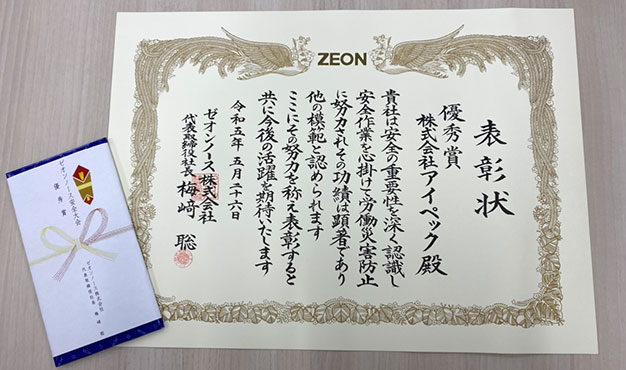 ZEON
表彰状
優秀賞
株式会社アイペック殿
貴社は安全の重要性を深く認識し
安全作業を心掛けて労働災害防止
に努力されその功績は顕著であり
他の模範と認められます
ここにその努力を称え表彰すると
共に今後の活躍を期待いたします
令和五年五月二十六日
ゼオンノース株式会社
代表取締役社長 梅﨑 聡
ゼオンノース安全大会
優秀賞
ゼオンノース株式会社
代表取締役社長 梅﨑 聡